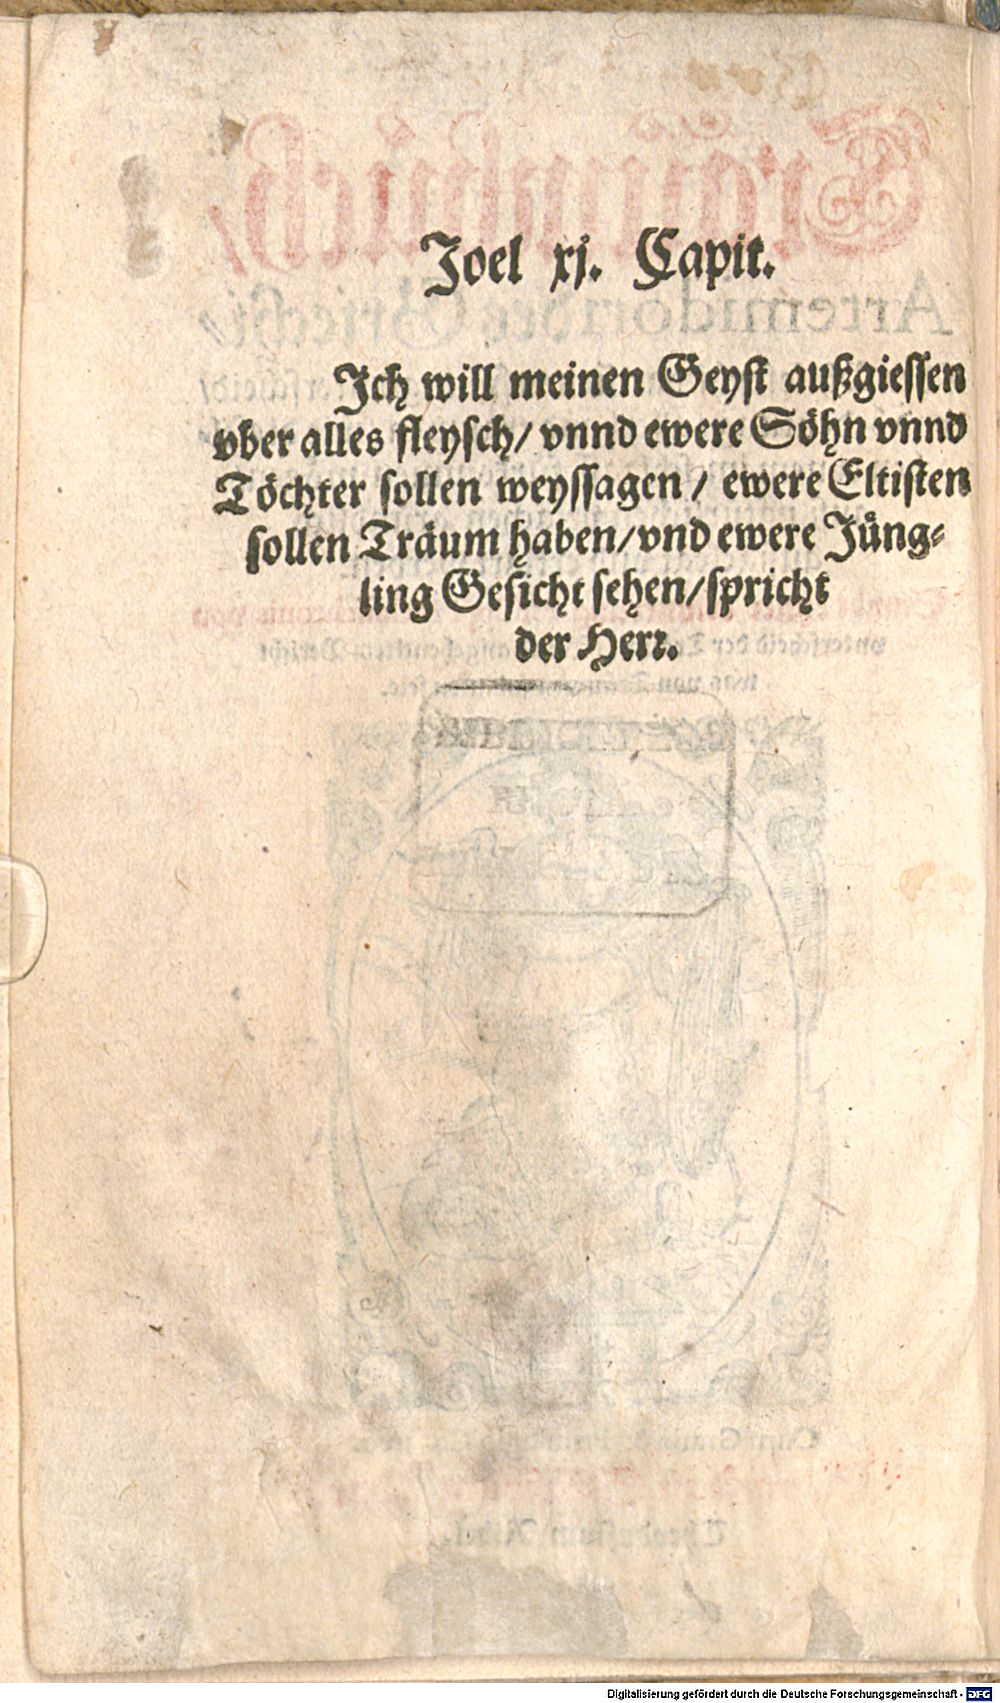 Joel xj. Capit.
Ich will meinen Geyst außgiessen
vber alles fleysch/ vnnd ewere Söhn vnnd
Töchter sollen weyssagen / ewere Eltisten
sollen Träum haben/vnd ewere Jüng-
ling Gesicht sehen/spricht
der Herr.
Digitalisierung gefördert durch die Deutsche Forschungsgemeinschaft - DFG